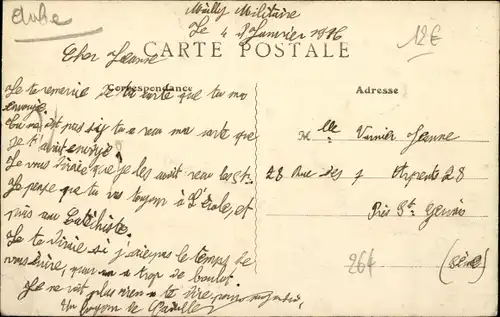 Aube
Mailly Militaire
Le 4 Janvier 1916
12€
Cher Jeanne
CARTE POSTALE
Correspondance
Adresse
Je te remercie de ta carte que tu ma
envoyé.
pas si tu a reçu ma carte que
je t'avait envoyé
Je vous dirait que je les avait reçu
Je pense que tu vas toujour à l'école, et
puis au Catéchiste.
Je te dirai si j'avais pas le temps de
vous écrire, on a trop de boulot.
Je ne voit plus rien a te dire pour aujourd'hui,
Un
Mlle Jeanne
28 Rue des 7 Arpents 28
Près St Gervais
(Seine)
264